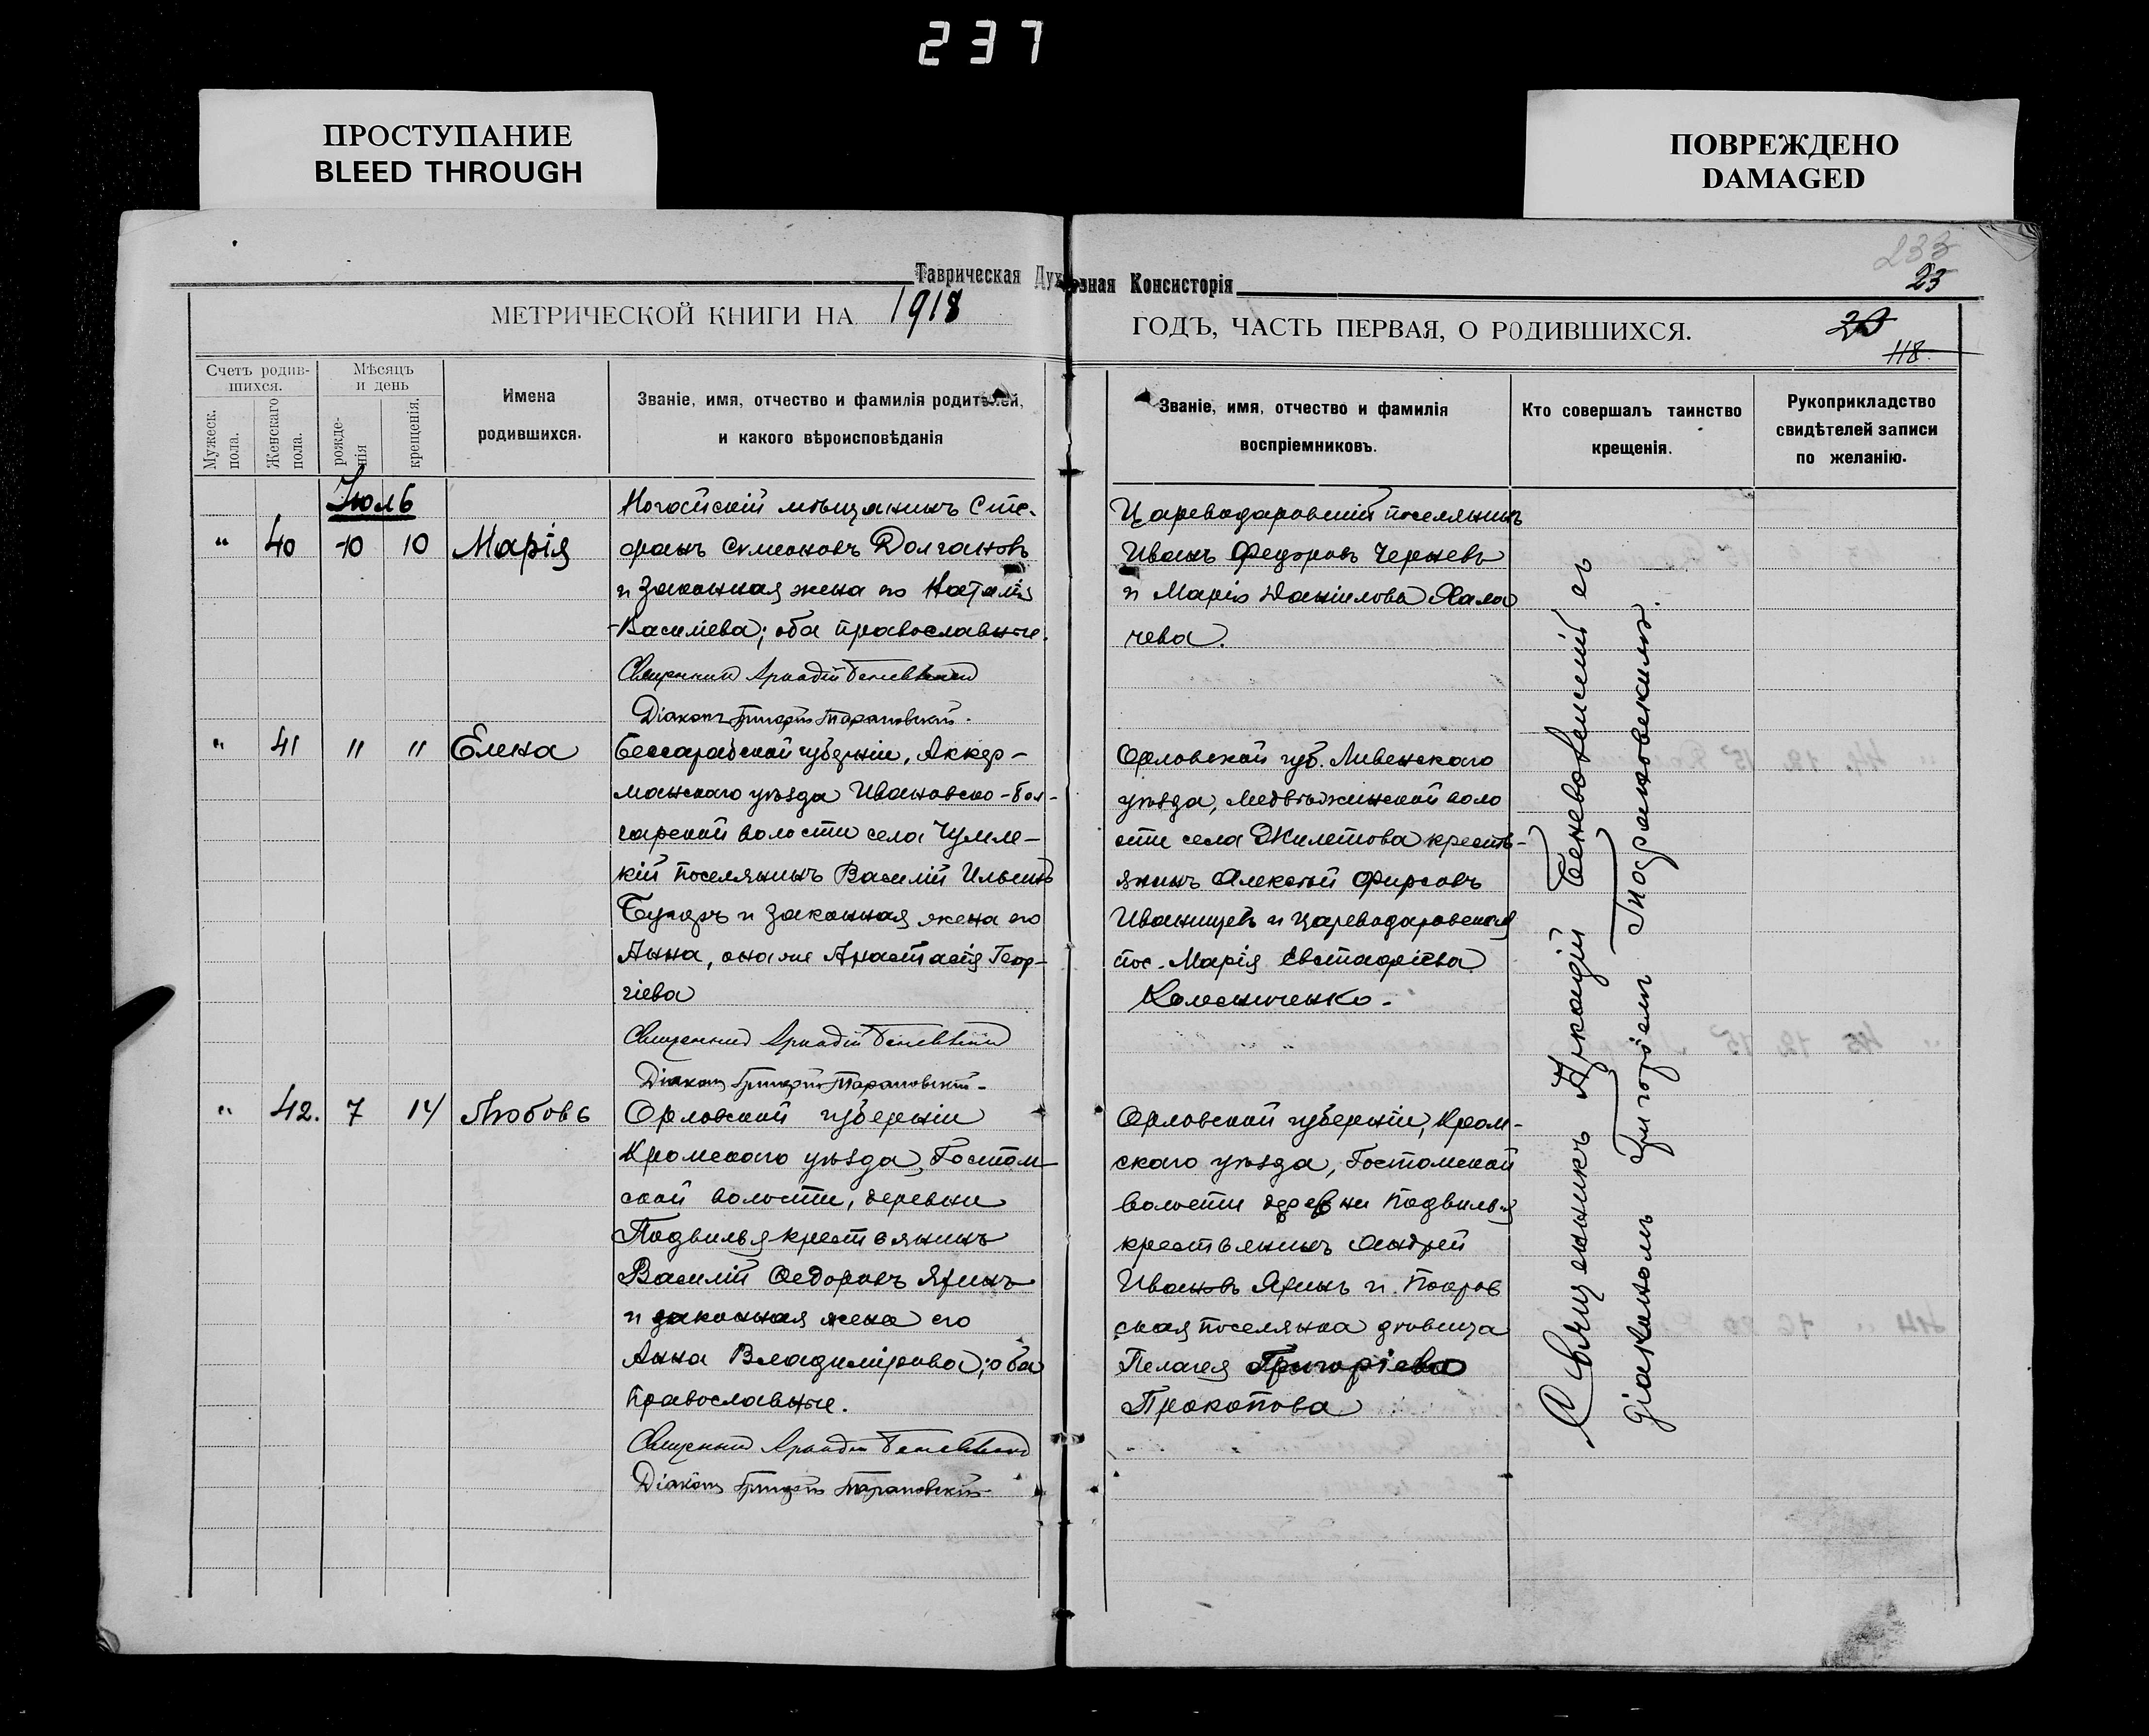 237
ПРОСТУПАНИЕ
BLEED THROUGH
ПОВРЕЖДЕНО
DAMAGED
233
23
Таврическая Духовная Консисторія
МЕТРИЧЕСКОЙ КНИГИ НА 1918
ГОДЪ, ЧАСТЬ ПЕРВАЯ, О РОДИВШИХСЯ.
20
118.
Счетъ родив-
шихся.
Мужеск.
пола.
Женскаго
пола.
Мѣсяцъ
и день
рожде-
нія
крещенія.
Имена
родившихся.
Званіе, имя, отчество и фамилія родителей,
и какого вѣроисповѣданія
Званіе, имя, отчество и фамилія
воспріемниковъ.
Кто совершалъ таинство
крещенія.
Рукоприкладство
свидѣтелей записи
по желанію.
Іюль
" 40 10 10 Марія
Ногайскій мѣщанинъ Сте-
фанъ Симеоновъ Долгановъ
и законная жена его Наталія
Василіева; оба православные.
Священникъ Аркадій Беневскій
Діаконъ Григорій Тарановскій.
Цареводаровскій поселянинъ
Иванъ Федоровъ Черневъ
и Марія Даніилова Кала
чева.
" 41 11 11 Елена
Бессарабской губерніи, Аккер-
манскаго уѣзда Ивановско-бол-
гарской волости села Чумле-
кій поселянинъ Василій Ильинъ
и законная жена его
Анна, она же Анастасія Геор-
гіева
Священникъ Аркадій Беневскій
Діаконъ Григорій Тарановскій.
Орловской губ. Ливенскаго
уѣзда, Медвѣжинской воло
сти села Жилетова кресть-
янинъ Алексѣй Фирсовъ
Иванищевъ и Цареводаровская
пос. Марія Евстафіева
Колесниченко.
" 42. 7 14 Любовь
Орловской губерніи
Кромскаго уѣзда, Гостом-
ской волости, деревни
Подвилья крестьянинъ
Василій Федоровъ
и законная жена его
Анна Владимірова; оба
православные.
Священникъ Аркадій Беневскій
Діаконъ Григорій Тарановскій.
Орловской губерніи, Кром-
скаго уѣзда, Гостомской
волости деревни Подвилья
крестьянинъ Андрей
Ивановъ и Покров
ская поселянка дѣвица
Пелагея Григоріева
Прокопова
Священникъ Аркадій съ
діакономъ Григоріемъ